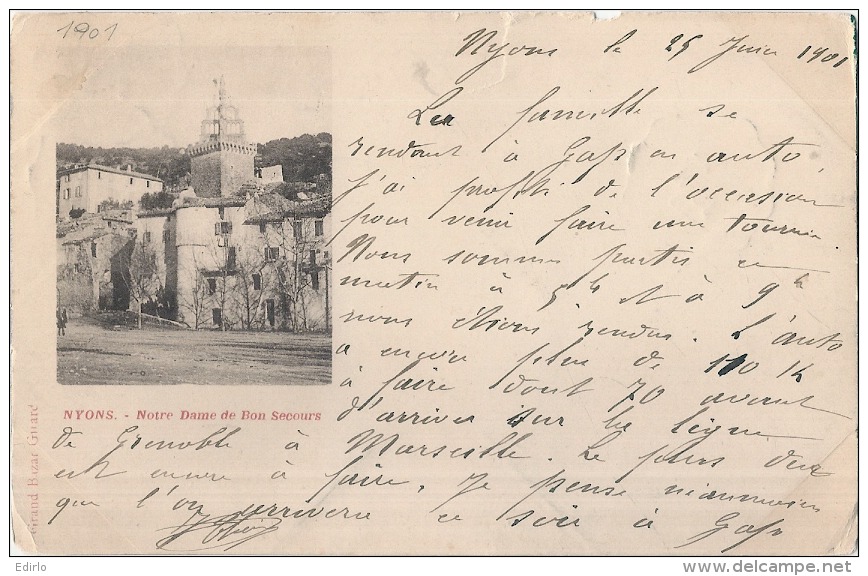 1901
Nyons le 25 Juin 1901
La famille se
rendant à Gap en auto,
j'ai profité de l'occasion
pour venir faire une tournée
Nous sommes partis ce
matin à 5h et à 9h
nous étions rendus. L'auto
a encore plus de 110 K
à faire dont 70 avant
d'arriver sur la ligne
de Grenoble à Marseille. Le plus dur
est encore à faire. Je pense néanmoins
que l'on arrivera ce soir à Gap
NYONS. - Notre Dame de Bon Secours
Grand Bazar Girard
delcampe.net